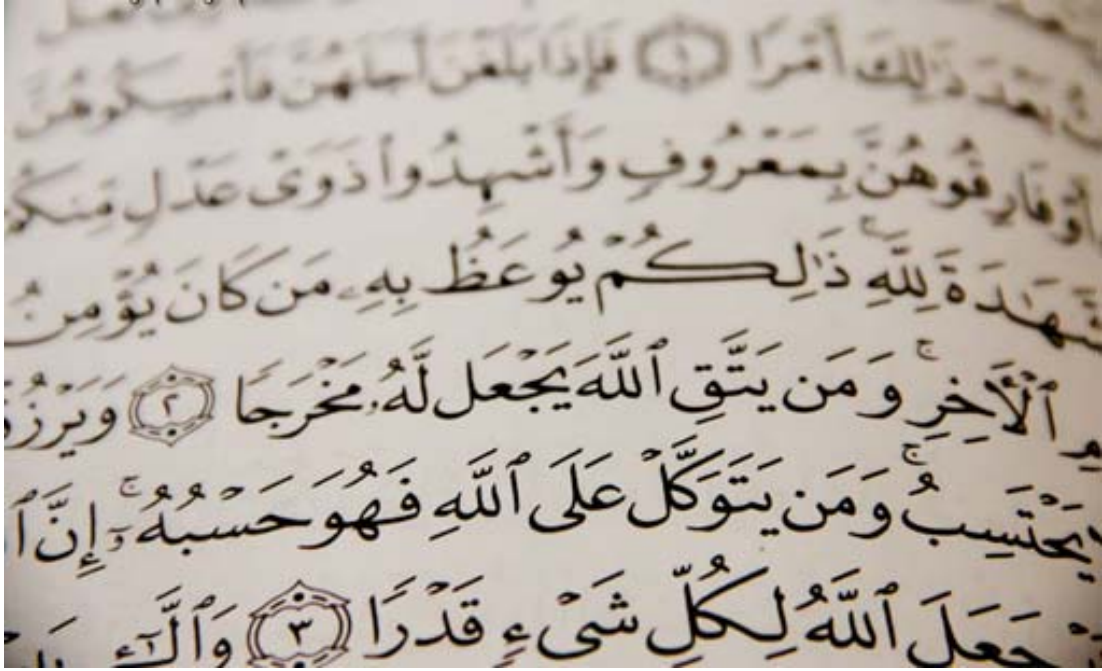 بَعْدَ ذَٰلِكَ أَمْرًا ١ فَإِذَا بَلَغْنَ أَجَلَهُنَّ فَأَمْسِكُوهُنَّ
أَوْ فَارِقُوهُنَّ بِمَعْرُوفٍ وَأَشْهِدُوا۟ ذَوَىْ عَدْلٍ مِّنكُ
شَّهَـٰدَةَ لِلَّهِ ۚ ذَٰلِكُمْ يُوعَظُ بِهِۦ مَن كَانَ يُؤْمِنُ
ٱلْـَٔاخِرِ ۚ وَمَن يَتَّقِ ٱللَّهَ يَجْعَل لَّهُۥ مَخْرَجًا ٢ وَيَرْزُقْ
يَحْتَسِبُ ۚ وَمَن يَتَوَكَّلْ عَلَى ٱللَّهِ فَهُوَ حَسْبُهُۥٓ ۚ إِنَّ
جَعَلَ ٱللَّهُ لِكُلِّ شَىْءٍ قَدْرًا ٣ وَٱلَّـٰٓـِٔى